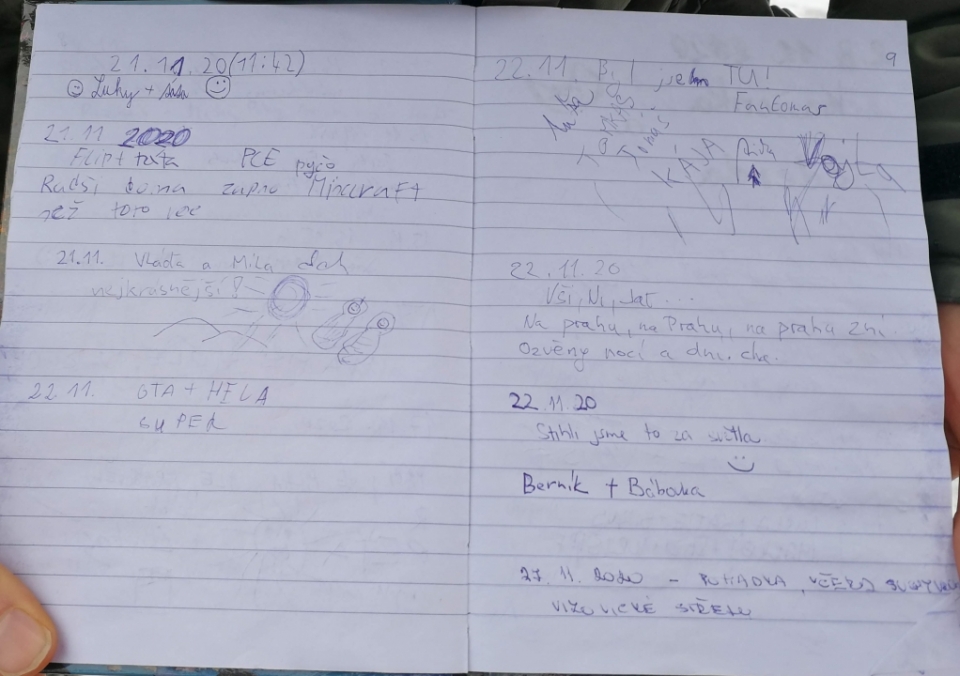 21.11.20 (11:42)
Luky + Áda
21.11 2020
Flip + tata PCE pyčo
Radši doma zapnu Mincraft
než toto
21.11. Vláďa a Míla
nejkrásnější!
22.11. GTA + HELA
SUPER
9
22.11. Byl jsem TU!
Fantomas
Tomáš
KÁJA
Vojta
22.11.20
Vši, Ni, Jať...
Na prahu, na Prahu, na prahu zní
Ozvěny nocí a dní.
22.11.20
Stihli jsme to za světla
Berník + Bábovka
27.11.2020 - POHÁDKA, VČERA
VIZOVICKÉ